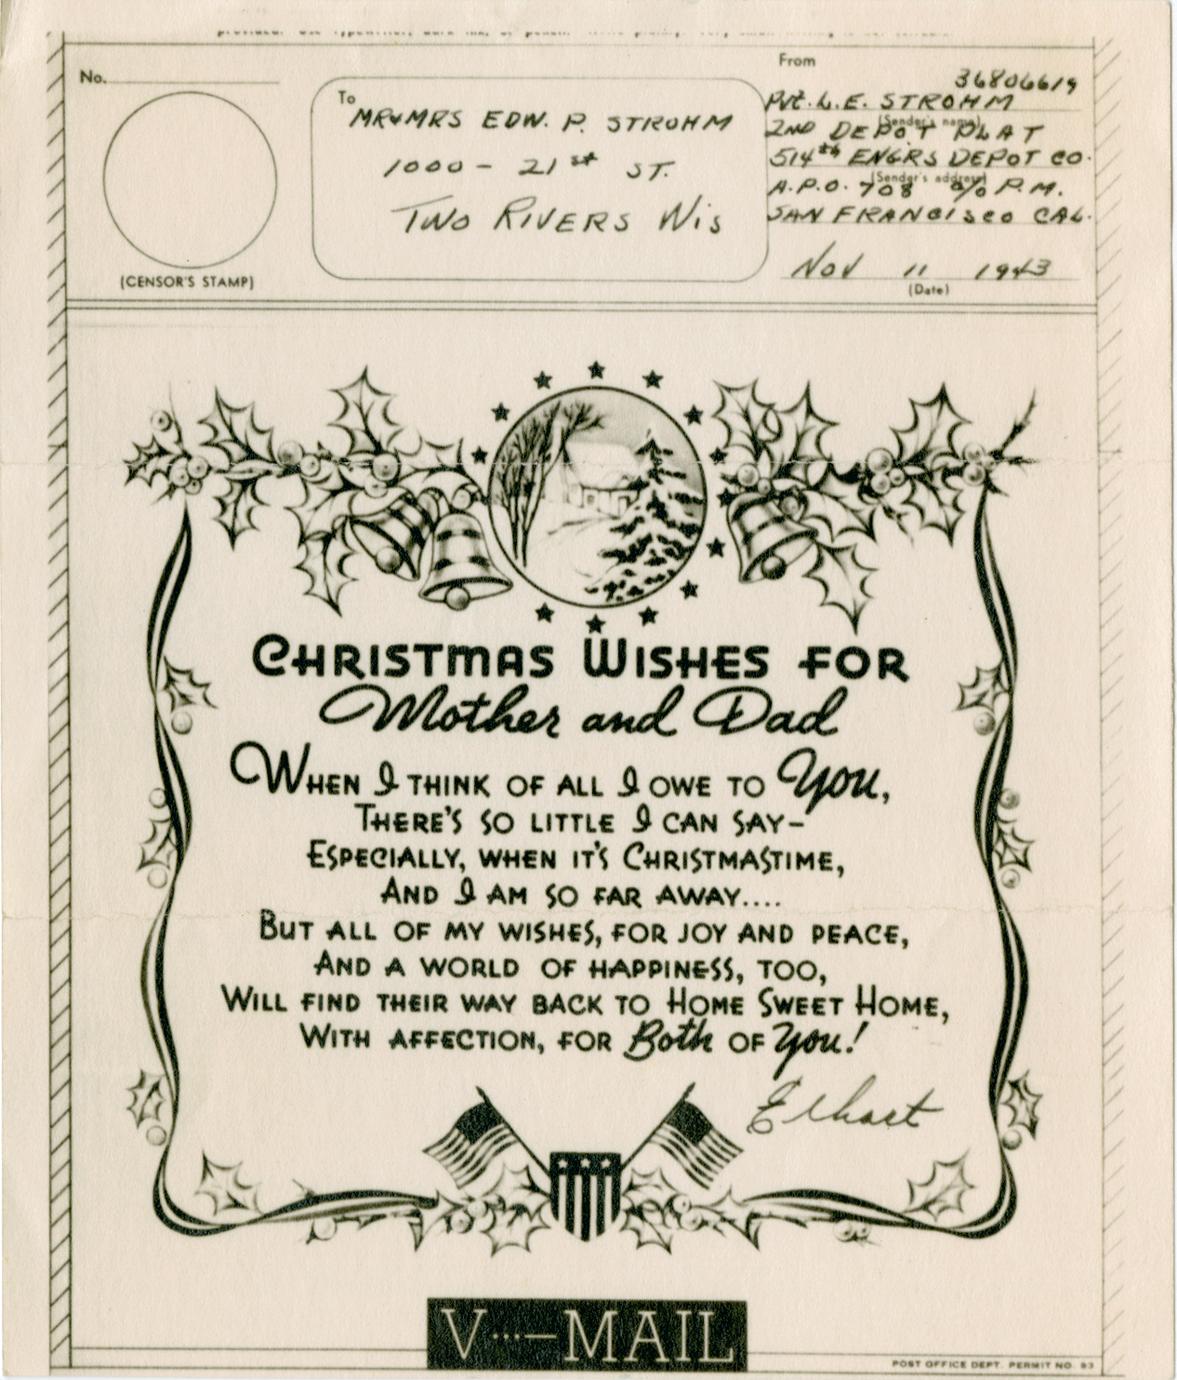 No.
To
MR & MRS EDW. P. STROHM
1000 - 21st ST.
TWO RIVERS WIS
From
36806619
PVT. L.E. STROHM
(Sender's name)
2ND DEPOT PLAT
514th ENGRS DEPOT CO.
(Sender's address)
A.P.O. 708 c/o P.M.
SAN FRANCISCO CAL.
NOV 11 1943
(Date)
(CENSOR'S STAMP)
CHRISTMAS WISHES FOR
Mother and Dad
WHEN I THINK OF ALL I OWE TO You,
THERE'S SO LITTLE I CAN SAY—
ESPECIALLY, WHEN IT'S CHRISTMASTIME,
AND I AM SO FAR AWAY....
BUT ALL OF MY WISHES, FOR JOY AND PEACE,
AND A WORLD OF HAPPINESS, TOO,
WILL FIND THEIR WAY BACK TO HOME SWEET HOME,
WITH AFFECTION, FOR Both OF You!
Elhart
V···—MAIL
POST OFFICE DEPT. PERMIT NO. 93